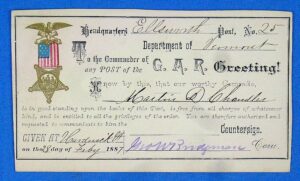 Headquarters Ellsworth Post, No. 25
Department of Vermont
To the Commander of
any POST of the G. A. R. Greeting!
Know by this, that our worthy Comrade,
Martin D. Chandler
is in good standing upon the books of this Post, is free from all charges of whatsoever
kind, and is entitled to all the privileges of the order. You are therefore authorized and
requested to communicate to him the Countersign.
GIVEN AT Hardwick Vt.
on the day of Feby 1887 Geo W Bridgman Com.